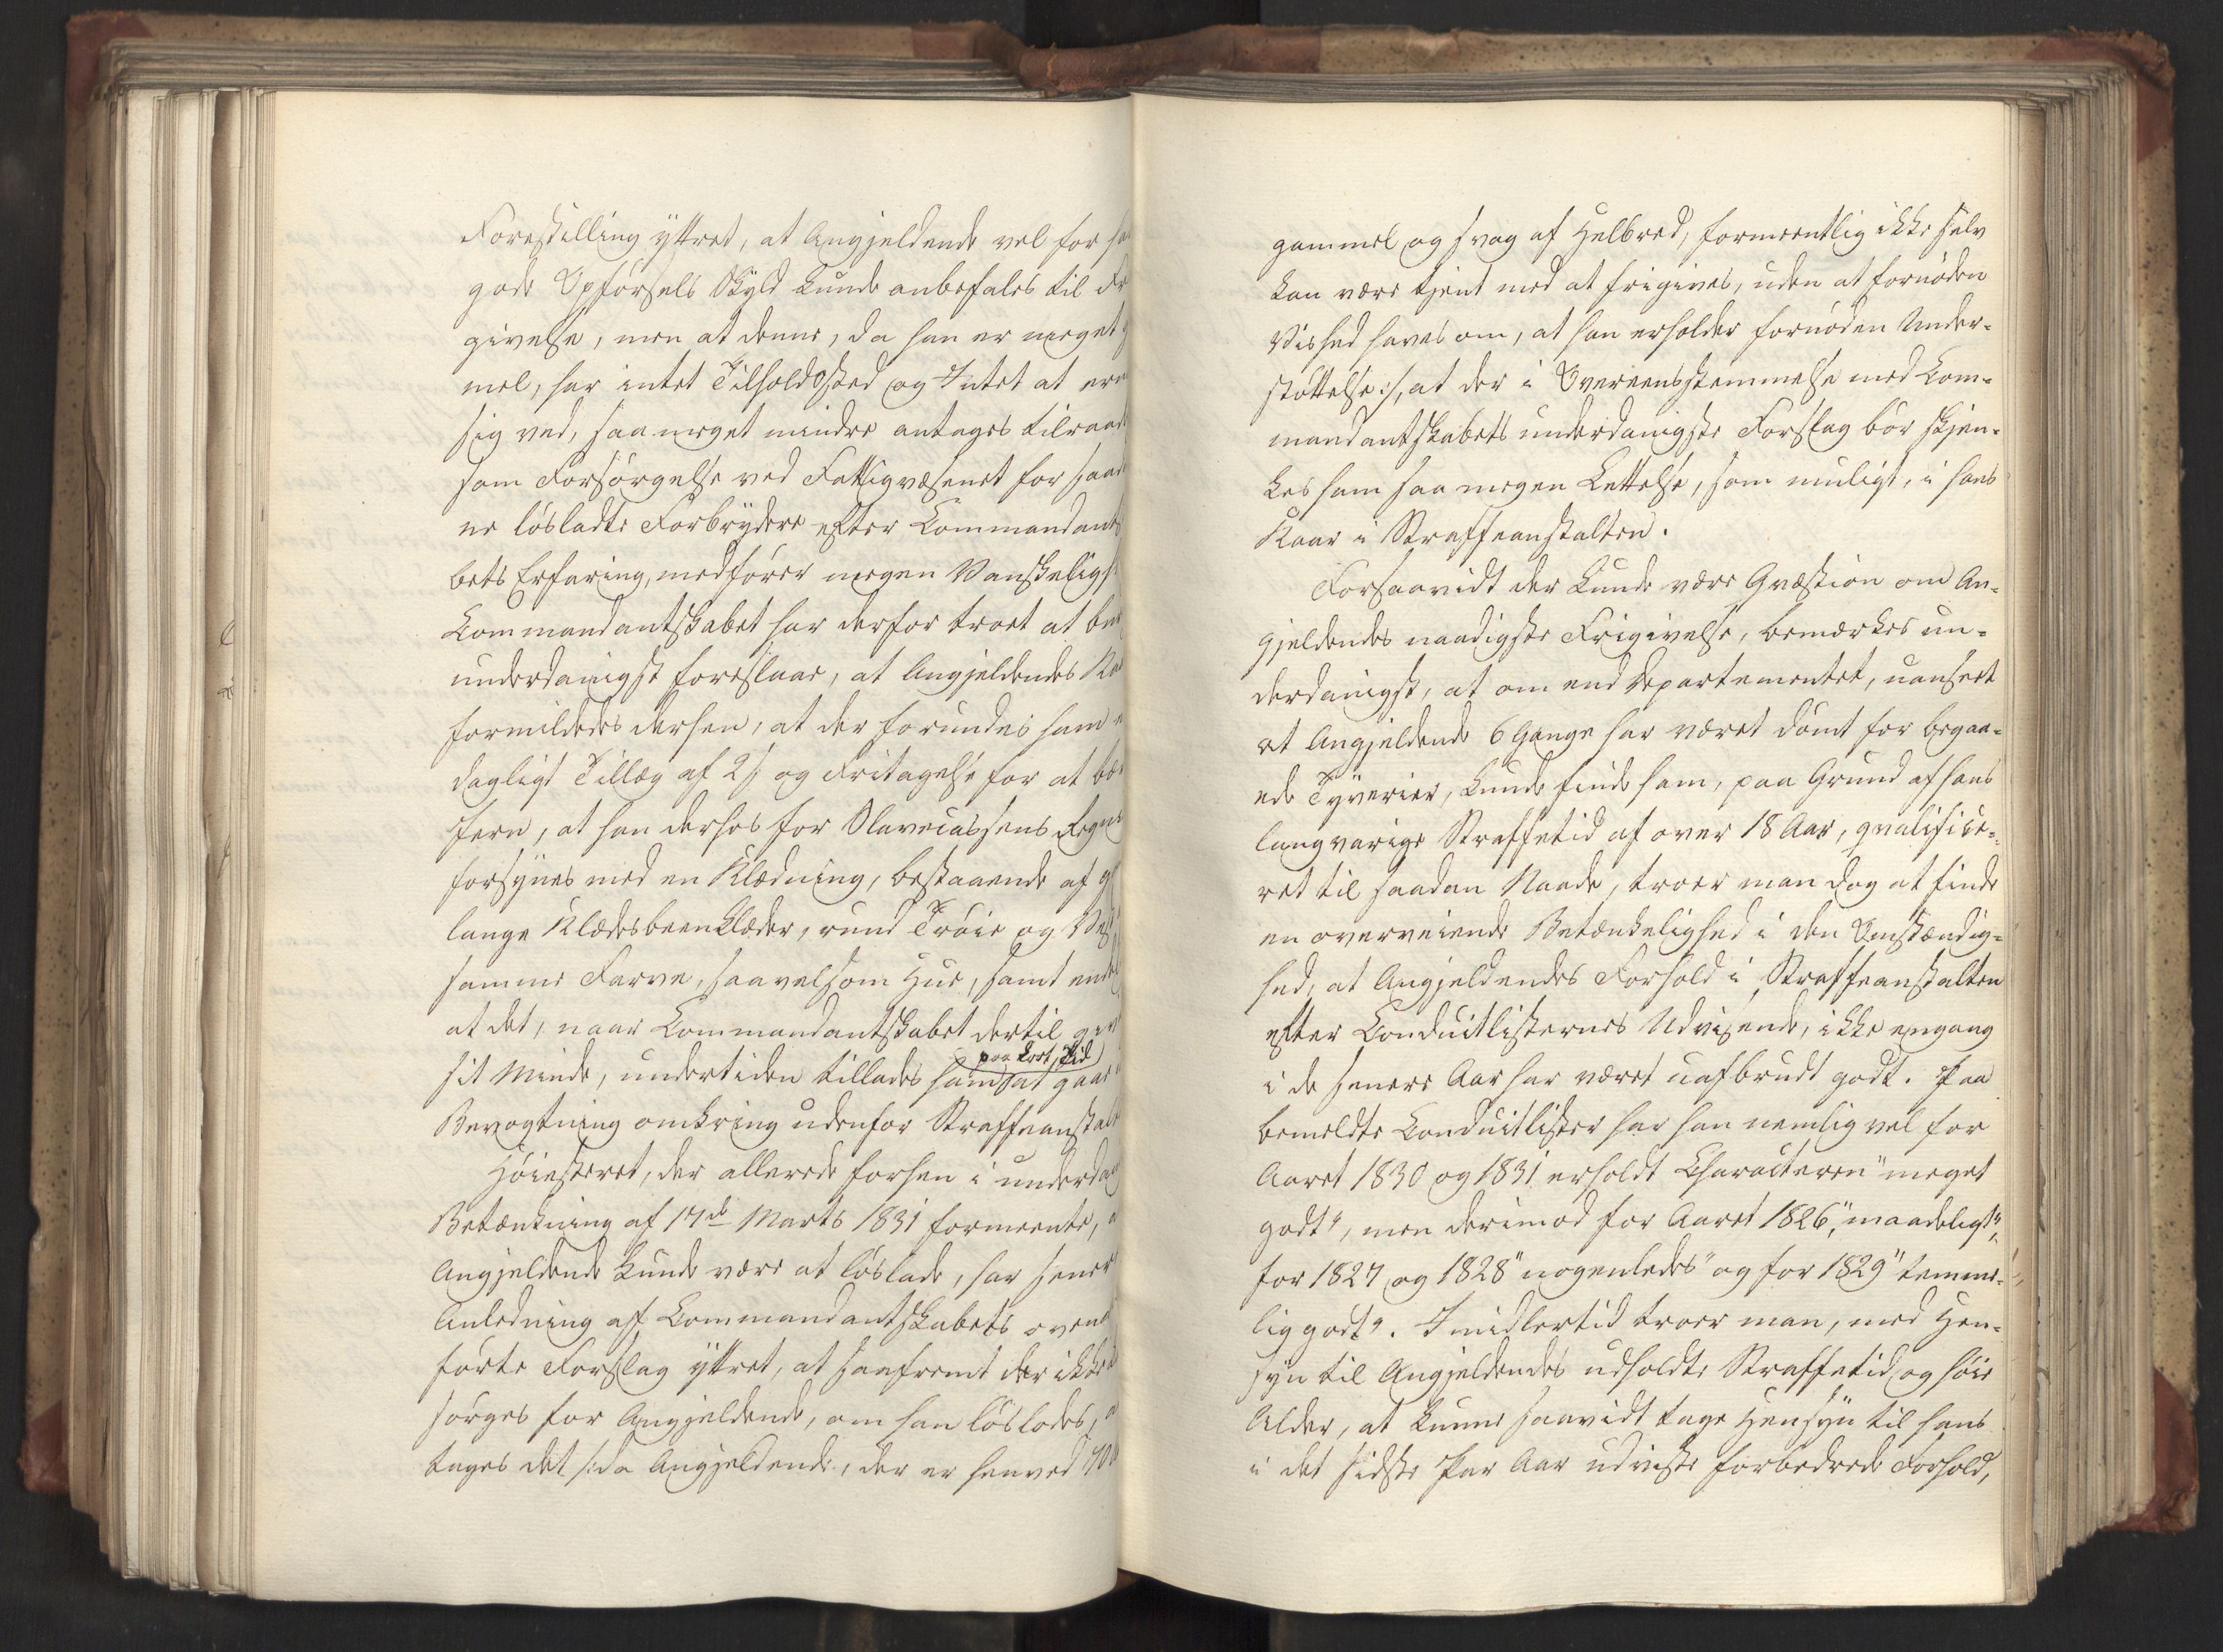 Forestilling yttret, at Angjeldende vel for
gode Opførsels Skyld kunde anbefales til
givelse, men at denne, da han er meget
mel, har intet Tilholdssted og Intet at
sig ved, saa meget mindre antages
som Forsørgelse ved Fattigvæsenet for
ne løsladte Forbrydere efter
bets Erfaring, medfører megen
Commandantskabet har derfor troet at
underdanigst foreslaae, at Angjeldendes
formildedes derhen, at der forundes ham
dagligt Tillæg af 2 ß og Fritagelse for at
Jern, at han derhos for Slavecassens
forsynes med en Klædning, bestaaende af
lange Klædesbeenklæder, rund Trøie og
samme Farve, saavelsom Hue, samt
at det, naar Commandantskabet dertil
paa kort Tid
sit Minde, undertiden tillades ham at gaae
Bevogtning omkring udenfor
Høiesteret, der allerede forhen i
Betænkning af 17de Marts 1831 formeente,
Angjeldende kunde være at løslade, har
Anledning af Commandantskabets
førte Forslag yttret, at saafremt der ikke
sørges for Angjeldende, om han løslodes,
tages det /: da Angjeldende, der er henved
gammel og svag af Helbred, formeentlig ikke selv
kan være tjent med at frigives, uden at fornøden
Vished haves om, at han erholder fornøden Under-
støttelse :/, at der i Overeensstemmelse med Com-
mandantskabets underdanigste Forslag bør skjen-
kes ham saa megen Lettelse, som muligt, i hans
Kaar i Straffeanstalten.
Forsaavidt der kunde være Qvæstion om An-
gjeldendes naadigste Frigivelse, bemærkes un-
derdanigst, at om end Departementet, uanseet
at Angjeldende 6 Gange har været dømt for begaa-
ede Tyverier, kunde finde ham, paa Grund af hans
langvarige Straffetid af over 18 Aar, qvalifice-
ret til saadan Naade, troer man dog at finde
en overveiende Betænkelighed i den Omstændig-
hed, at Angjeldendes Forhold i Straffeanstalten
efter Conduitlisternes Udvisende, ikke engang
i de senere Aar har været uafbrudt godt. Paa
bemeldte Conduitlister har han nemlig vel for
Aaret 1830 og 1831 erholdt Characteren "meget
godt", men derimod for Aaret 1826, "maadeligt",
for 1827 og 1828 "nogenledes" og for 1829 "temme-
lig godt". Imidlertid troer man, med Hen-
syn til Angjeldendes udholdte Straffetid og høie
Alder, at kunne saavidt tage Hensyn til hans
i det sidste Par Aar udviste forbedrede Forhold,